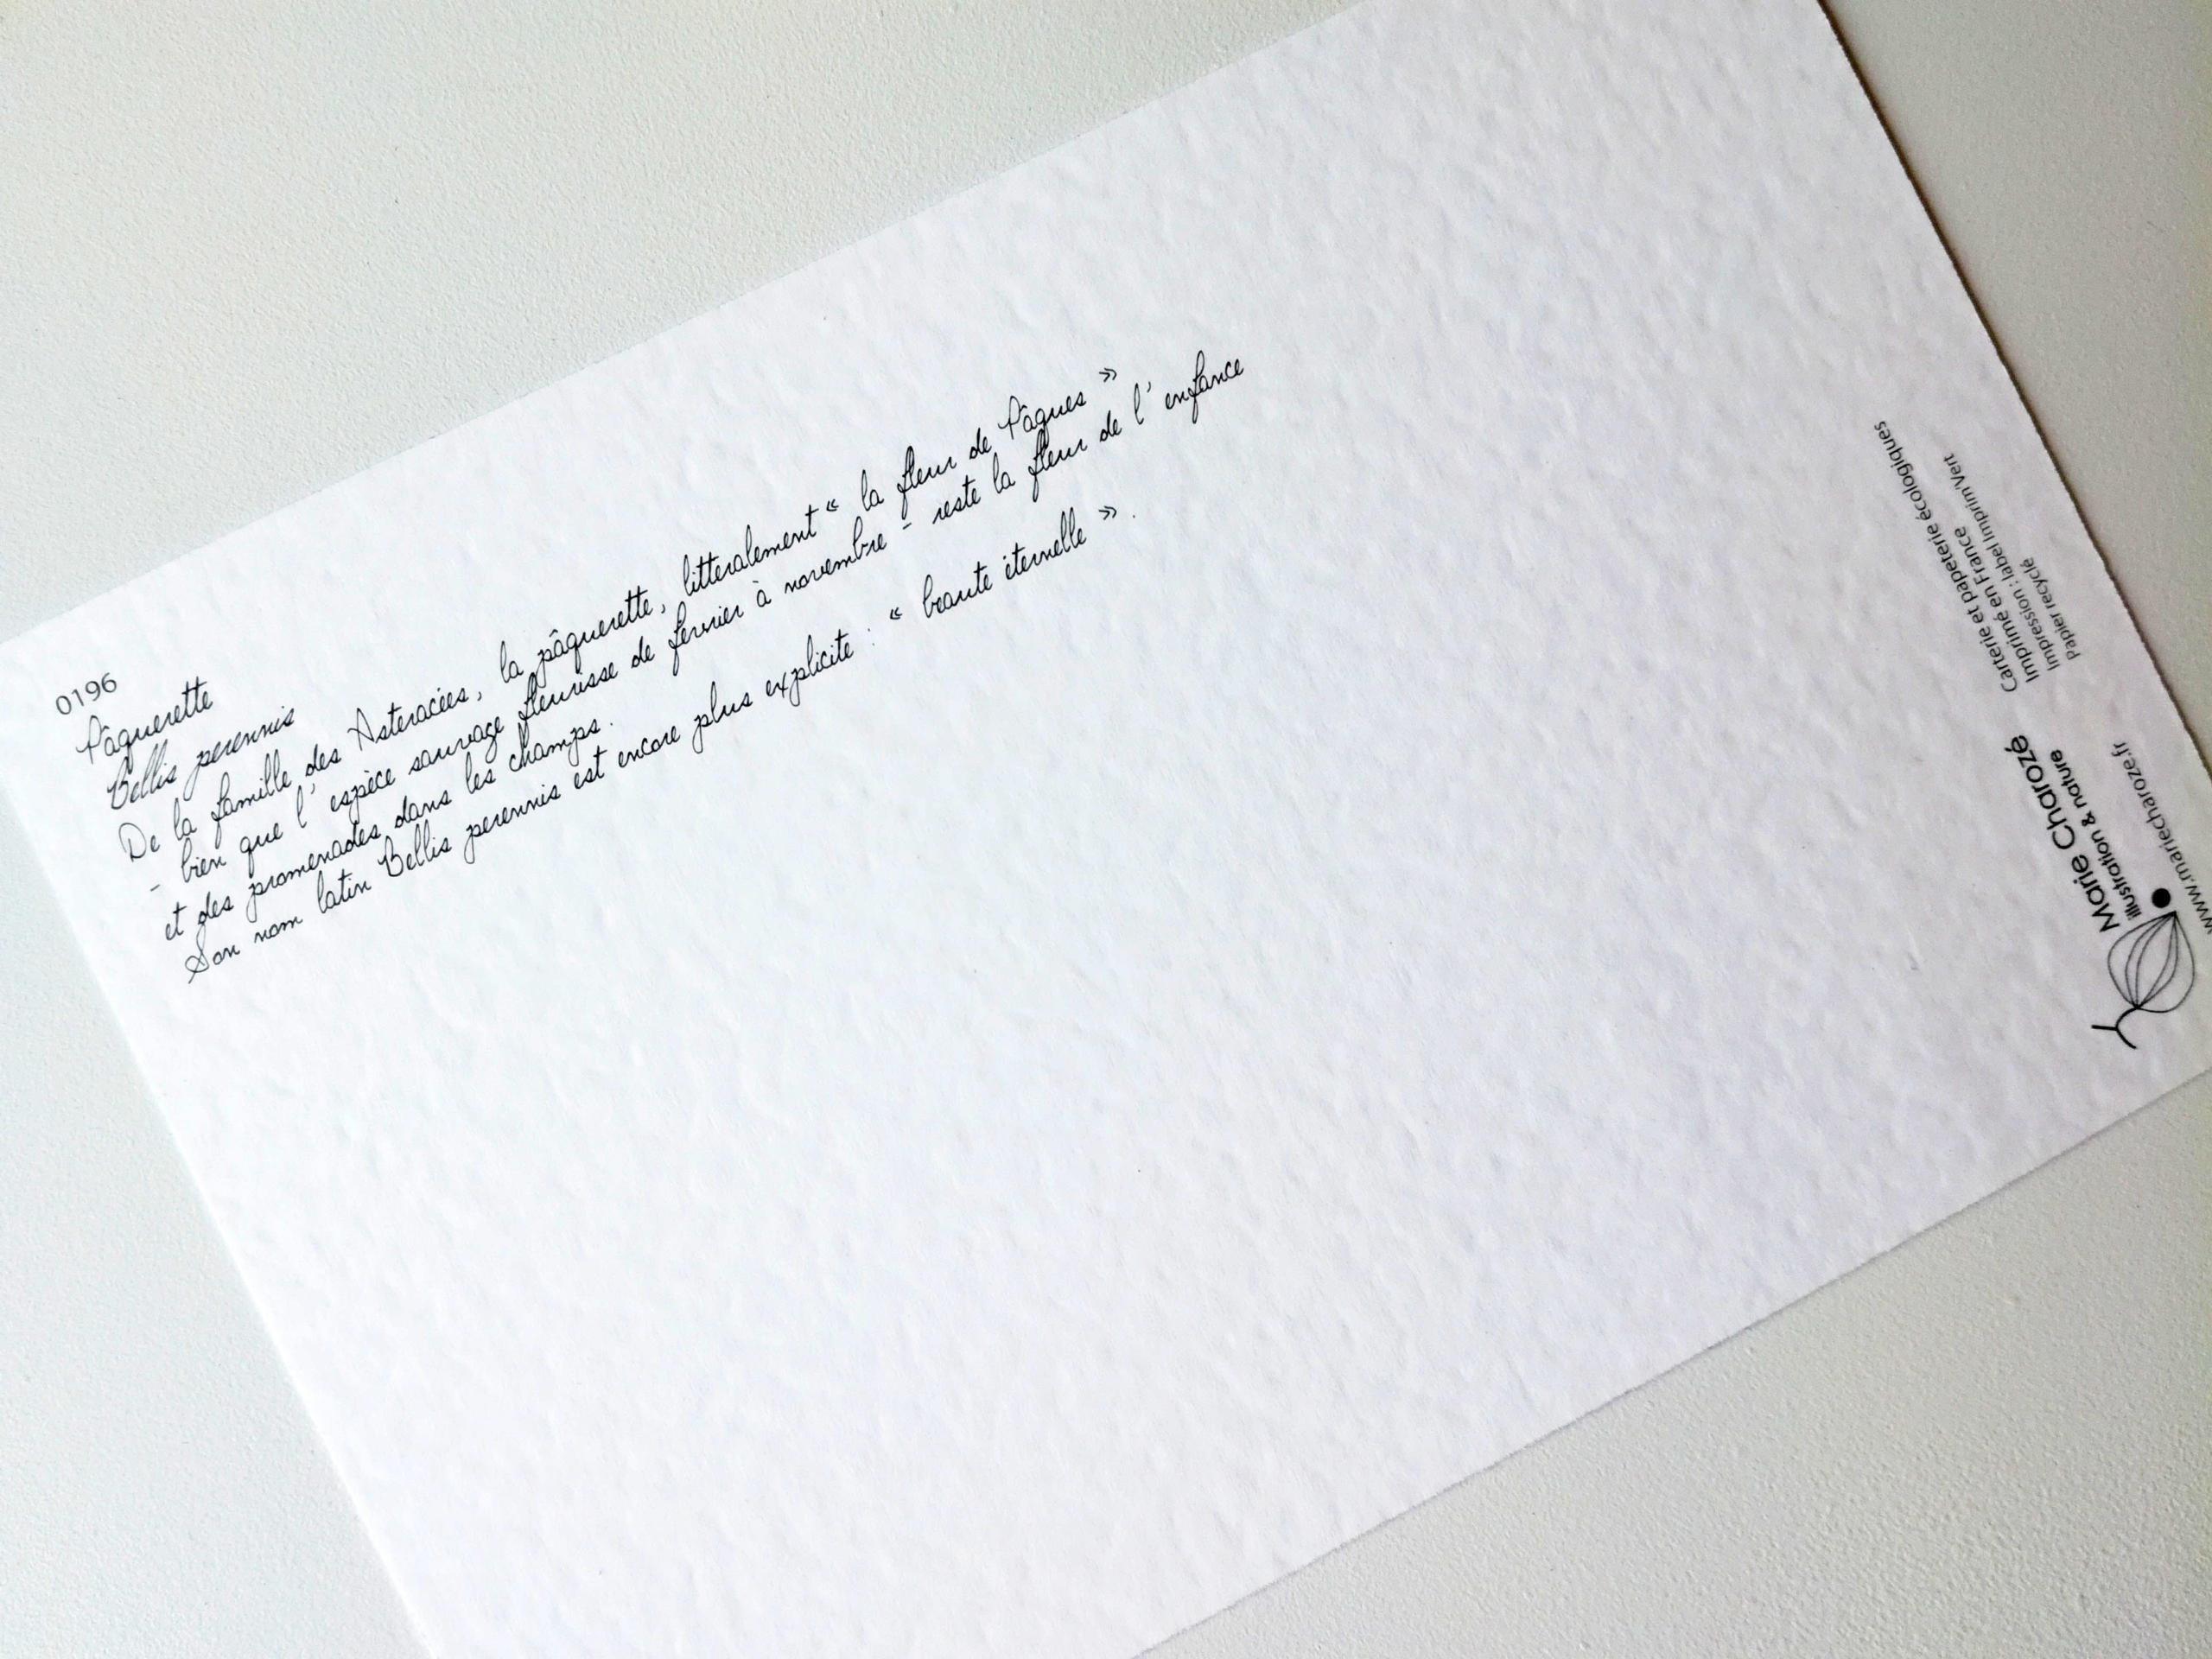 0196
Pâquerette
Bellis perennis
De la famille des Asteracées, la pâquerette, litteralement « la fleur de Pâques »
- bien que l' espèce sauvage fleurisse de fevrier à novembre - reste la fleur de l' enfance
et des promenades dans les champs.
Son nom latin Bellis perennis est encore plus explicite : « beaute éternelle » .
Carterie et papeterie écologiques
Imprimé en France
Impression : label Imprim'Vert
Papier recyclé
Marie Charozé
illustration & nature
www.mariecharoze.fr